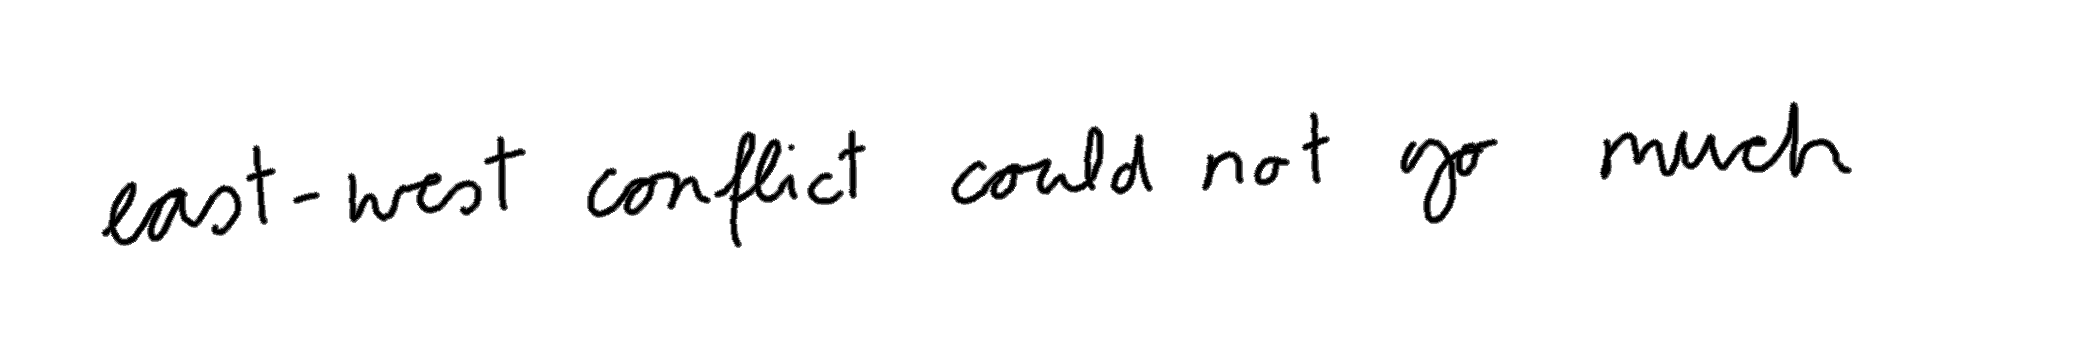 east-west conflict could not go much